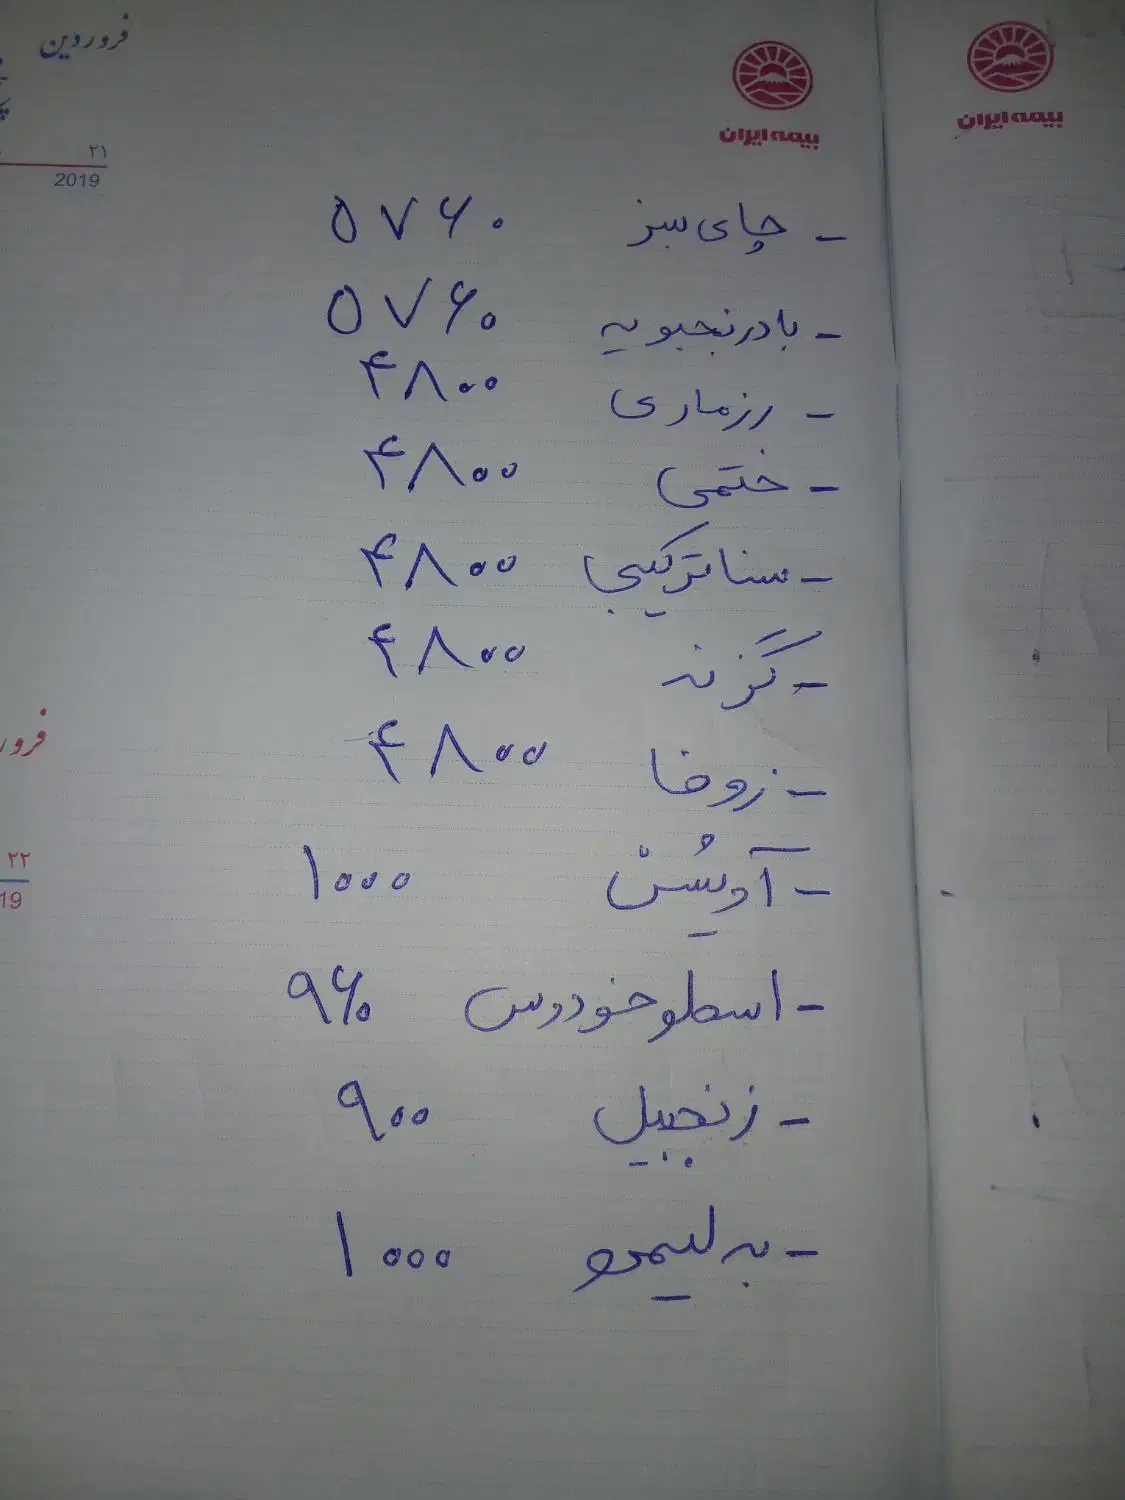 فروردین
۲۱
2019
بیمه ایران
بیمه ایران
- چای سبز ۵۷۶۰
- بادرنجبویه ۵۷۶۰
- رزماری ۴۸۰۰
- ختمی ۴۸۰۰
- سنا ترکیبی ۴۸۰۰
- گزنه ۴۸۰۰
- زوفا ۴۸۰۰
فرور
- آویشن ۱۰۰۰
۲۲
19
- اسطوخودوس ۹۶۰
- زنجبیل ۹۰۰
- به لیمو ۱۰۰۰